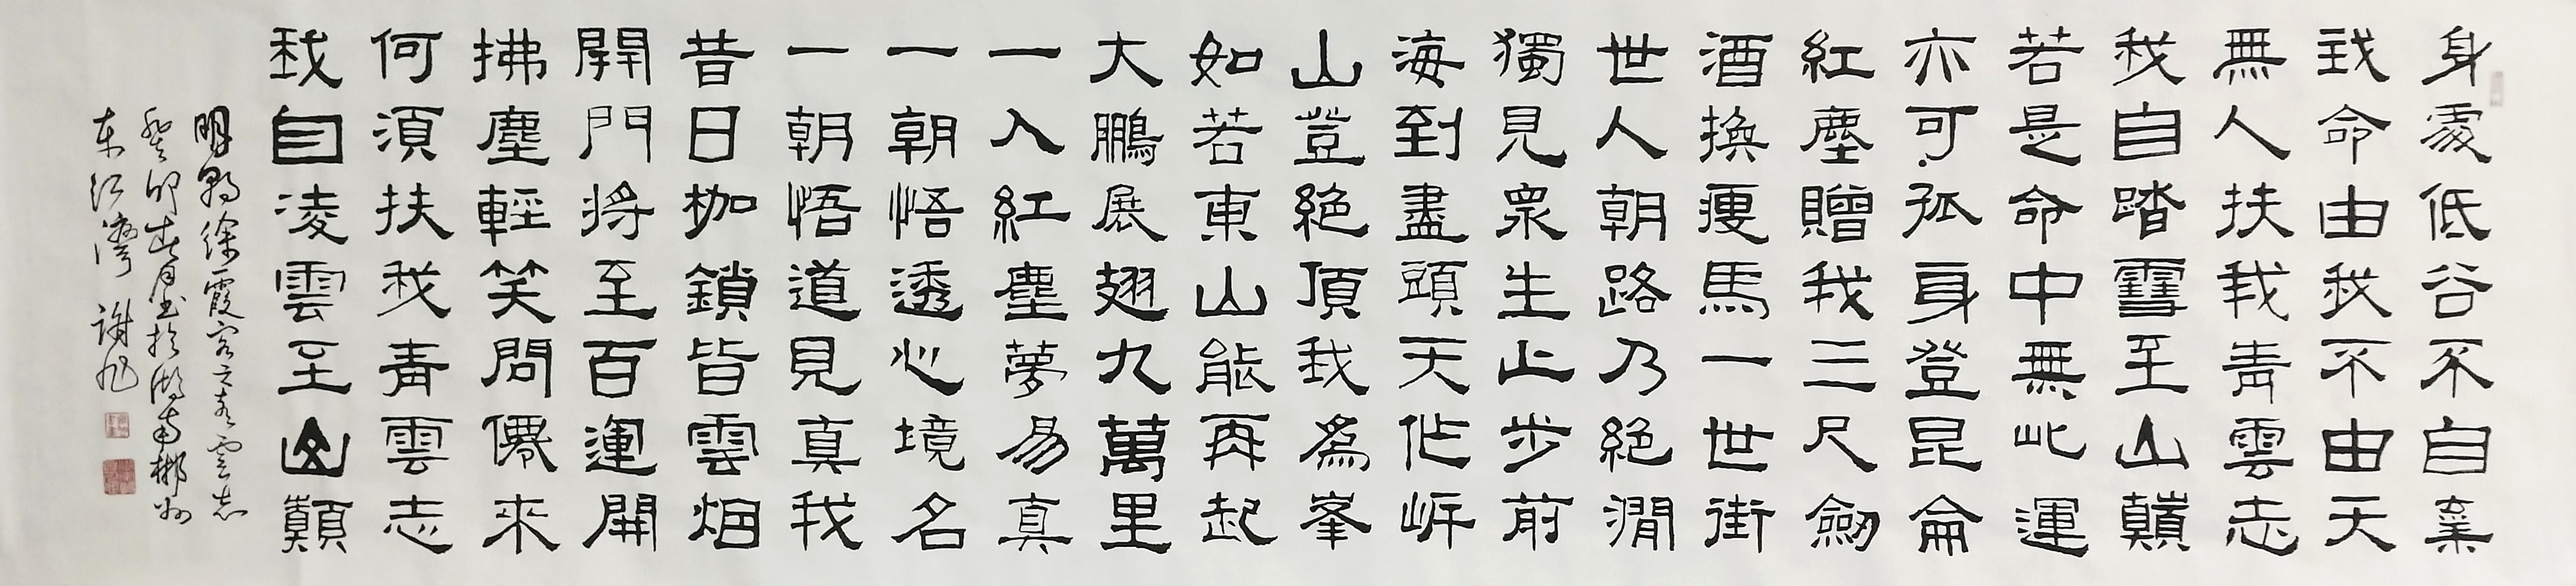 身處低谷不自棄
我命由我不由天
無人扶我青雲志
我自踏雪至山巔
若是命中無此運
亦可孤身登昆侖
紅塵贈我三尺劍
酒換瘦馬一世街
世人朝路乃絕澗
獨見眾生止步前
海到盡頭天作岸
山登絕頂我為峯
如若東山能再起
大鵬展翅九萬里
一入紅塵夢易真
一朝悟透心境名
一朝悟道見真我
昔日枷鎖皆雲烟
開門將至百運開
拂塵輕笑問僊來
何須扶我青雲志
我自凌雲至山巔
明朝徐霞客之青雲志
癸卯春月書於湖南郴州
東江灣 謝旭